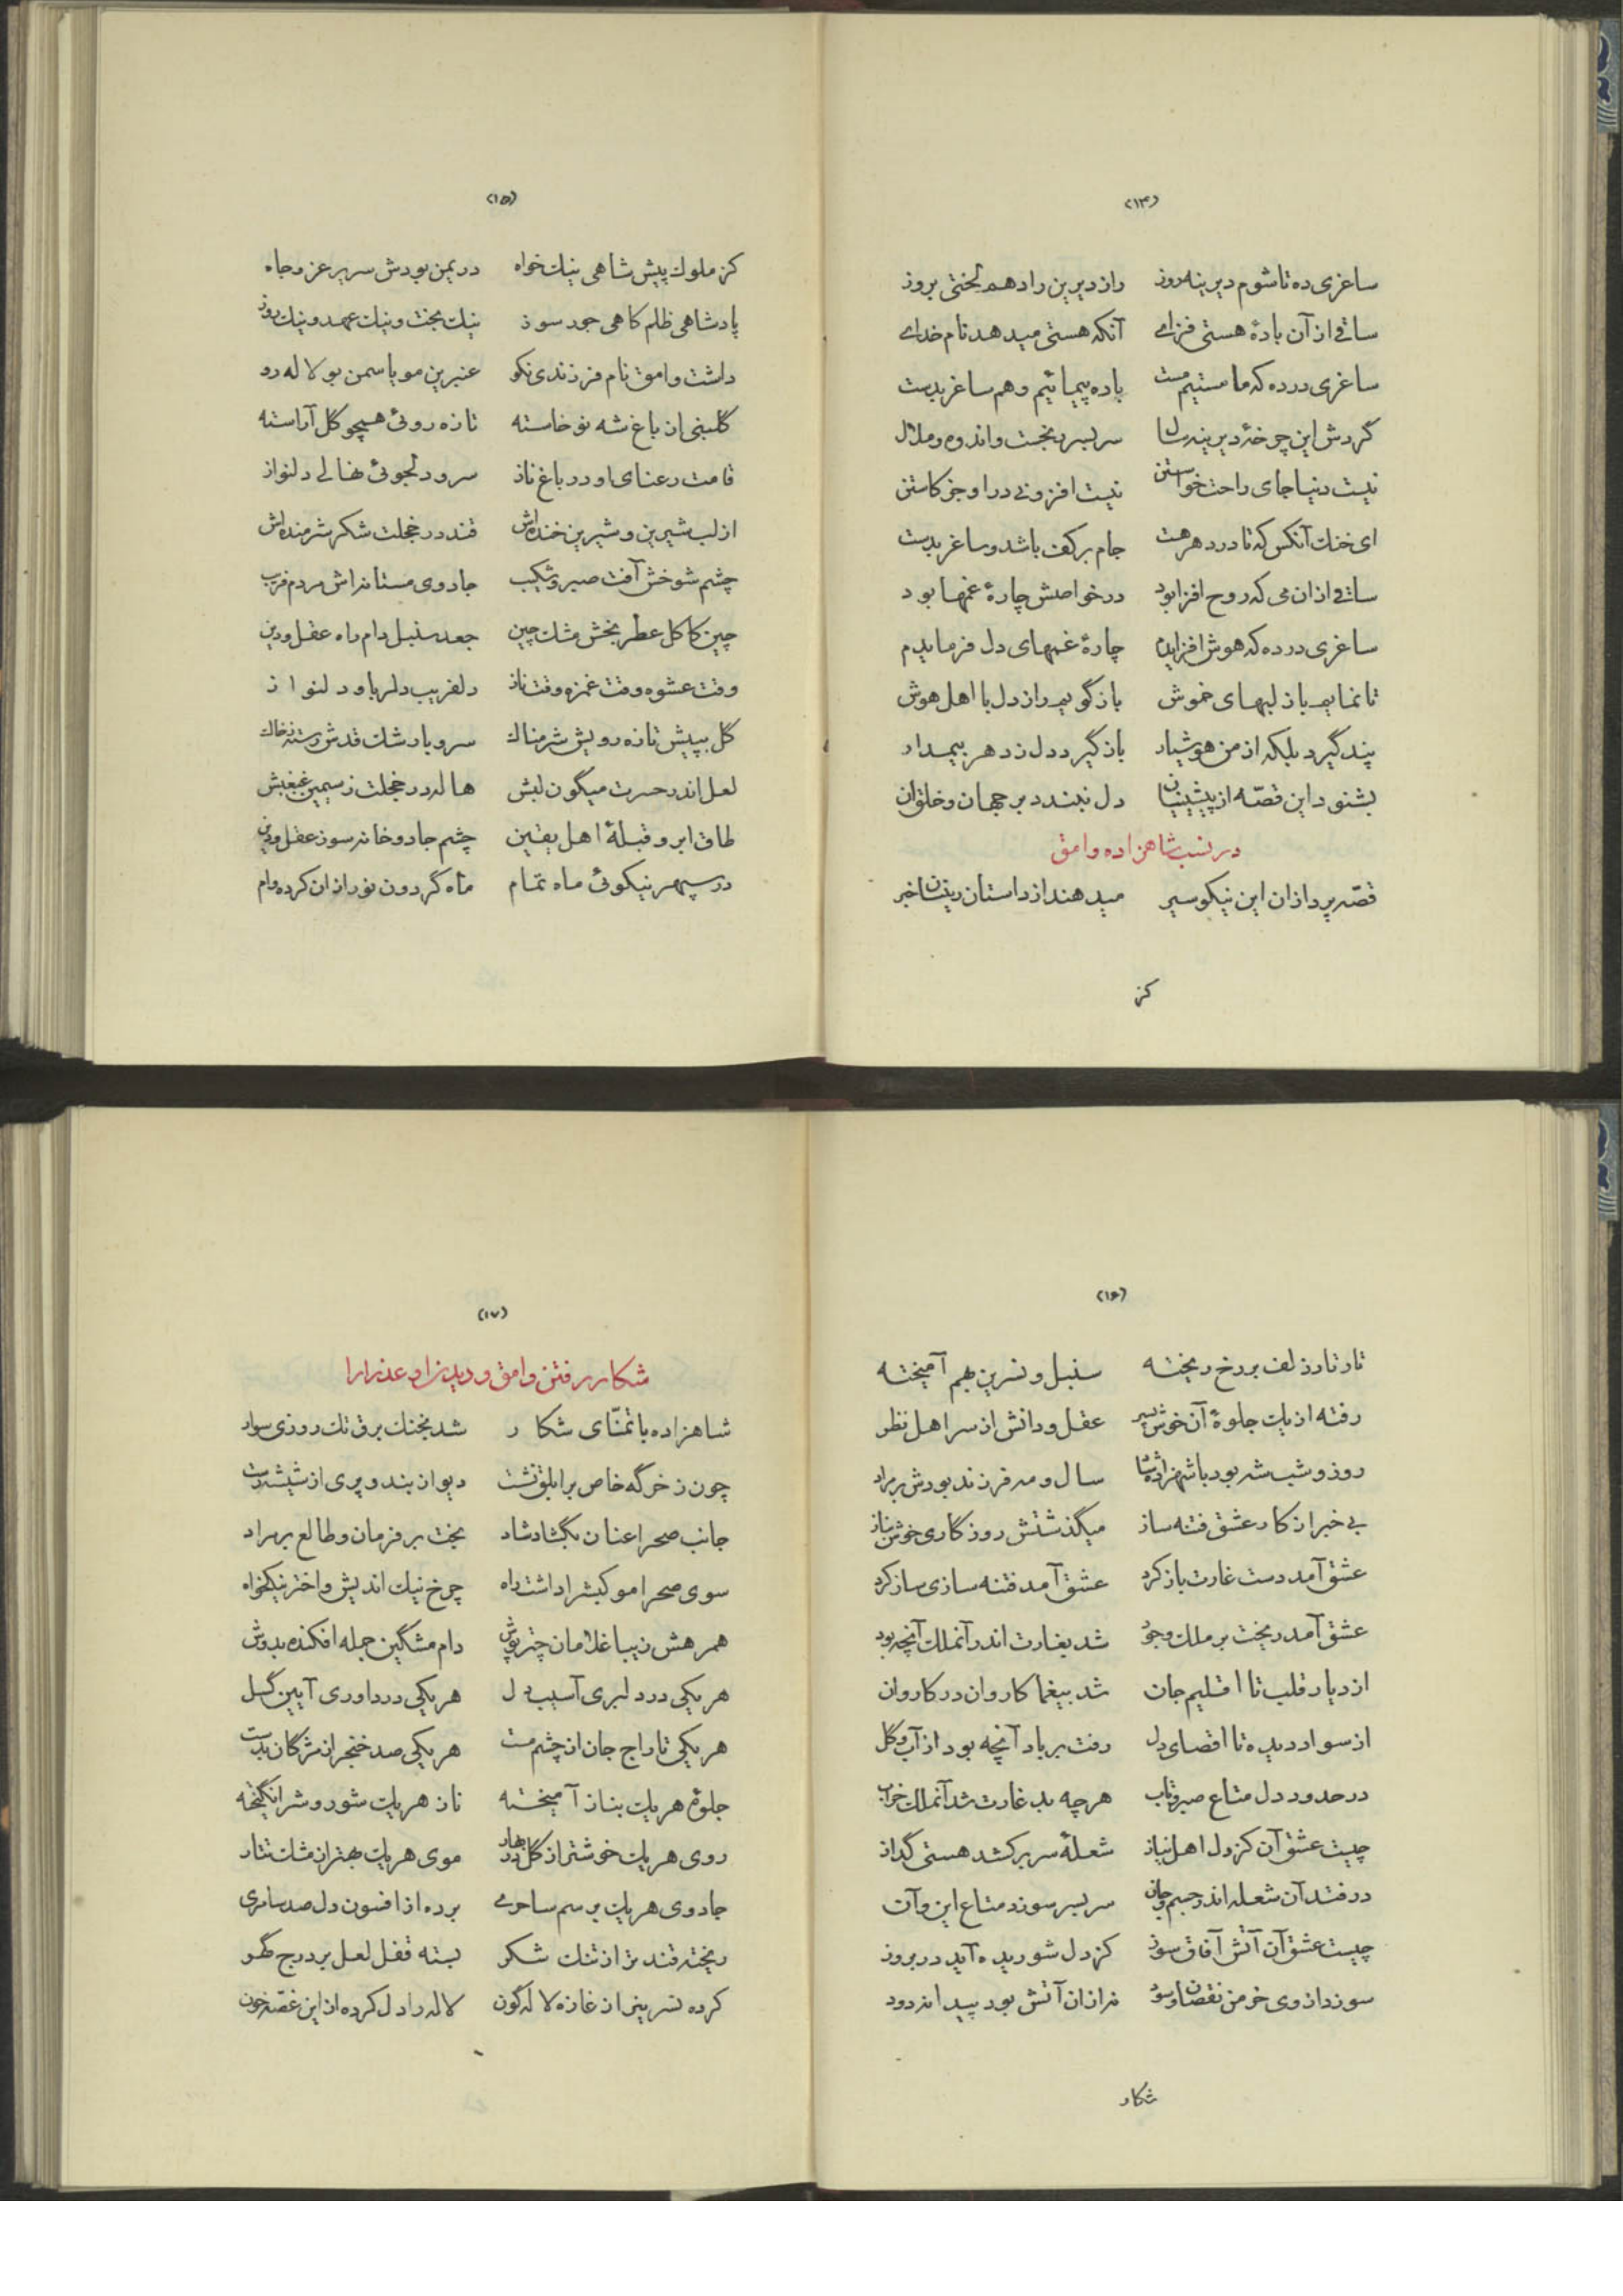 (۱۴)
ساغری ده تا شوم دیرینه روز راز دیرین را دهم لختی بروز
ساقی از آن بادهٔ هستی فزای آنکه هستی میدهد نام خدای
ساغری در ده که ما مستیم مست باده پیمائیم و هم ساغر بدست
گردش این چرخهٔ دیرینه سال سر بسر رنجست و اندوه و ملال
نیست دنیا جای راحت خواستن نیست افزونی در او جز کاستن
ای خنک آنکس که تا در دهر هست جام بر کف باشد و ساغر بدست
ساقی ازان می که روح افزا بود در خواصش چارهٔ غمها بود
ساغری در ده که هوش افزایدم چارهٔ غمهای دل فرمایدم
تا نمایم باز لبهای خموش باز گویم راز دل با اهل هوش
پند گیرد بلکه از من هوشیار باز گیرد دل ز دهر بیمدار
بشنود این قصّه از پیشینیان دل نبندد بر جهان و خلق آن
در نسب شاهزاده وامق
قصّه پردازان این نیکو سیر میدهند از داستان زینسان خبر
کز
(۱۵)
کز ملوک پیش شاهی نیک خواه در یمن بودش سریر عز و جاه
پادشاهی ظلم کاهی جور سوز نیک بخت و نیک عهد و نیک روز
داشت وامق نام فرزندی نکو عنبرین مو یاسمن بو لاله رو
گلبنی از باغ شه نو خاسته تازه روئی همچو گل آراسته
قامت رعنای او در باغ ناز سرو دلجوئی نهالی دلنواز
از لب شیرین و شیرین خنده‌اش قند در خجلت شکر شرمنده‌اش
چشم شوخش آفت صبر و شکیب جادوی مستانه‌اش مردم فریب
چین کاکل عطر بخش مشک چین جعد سنبل دام راه عقل و دین
وقت عشوه وقت غمزه وقت ناز دلفریب و دلربا و دلنواز
گل بپیش تازه رویش شرمناک سرو با رشک قدش رسته ز خاک
لعل اندر حسرت میگون لبش هاله در خجلت ز سیمین غبغبش
طاق ابرو قبلهٔ اهل یقین چشم جادو خانه سوز عقل و دین
در سپهر نیکوئی ماه تمام ماه گردون نور ازان کرده وام
(۱۶)
تار تار زلف بر رخ ریخته سنبل و نسرین بهم آمیخته
رفته از یک جلوهٔ آن خوش سیر عقل و دانش از سر اهل نظر
روز و شب شه بود با شهزاده شاد سال و مه فرزند بودش بر مراد
بی خبر از کار عشق فتنه ساز میگذشتش روزگاری خوش بناز
عشق آمد دست غارت باز کرد عشق آمد فتنه سازی ساز کرد
عشق آمد ریخت بر ملک وجود شد بغارت اندر آنملک آنچه بود
از دیار قلب تا اقلیم جان شد بیغما کاروان در کاروان
از سواد دیده تا اقصای دل رفت بر باد آنچه بود از آب و گل
در حدود دل متاع صبر و تاب هرچه بد غارت شد آنملک خراب
چیست عشق آن کز دل اهل نیاز شعلهٔ سر برکشد هستی گداز
در فتد آن شعله اندر جسم و جان سر بسر سوزد متاع این و آن
چیست عشق آن آتش آفاق سوز کز دل شوریده آید در بروز
سوزد از وی خرمن نقصان و سود نه ازان آتش بود پیدا نه دود
شکار
(۱۷)
شکار رفتن وامق و دیدن او عذرا را
شاهزاده با تمنّای شکار شد بخنک برق تک روزی سوار
چون ز خرگه خاص بر ابلق نشست دیو از بند و پری از شیشه رست
جانب صحرا عنان بگشاد شاد بخت بر فرمان و طالع بر مراد
سوی صحرا موکبش را داشت راه چرخ نیک اندیش و اختر نیکخواه
همرهش زیبا غلامان چتر پوش دام مشگین جمله افکنده بدوش
هر یکی در دلبری آسیب دل هر یکی در داوری آیین گسل
هر یکی تاراج جان از چشم مست هر یکی صد خنجر از مژگان بدست
جلوهٔ هر یک بناز آمیخته ناز هر یک شور و شر انگیخته
روی هر یک خوشتر از گل در بهار موی هر یک بهتر از مشک تتار
جادوی هر یک برسم ساحری برده از افسون دل صد سامری
ریخته قند تر از تنگ شکر بسته قفل لعل بر درج گهر
کرده نسرین از غازه لاله گون لاله را دل کرده از این غصّه خون